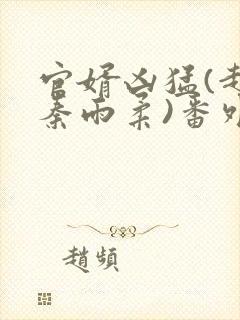 官婿凶猛(赵
秦雨柔)番外
趙頻